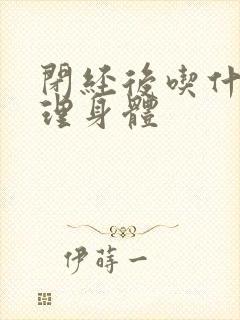 閉經後喫什
理身體
伊蒔一